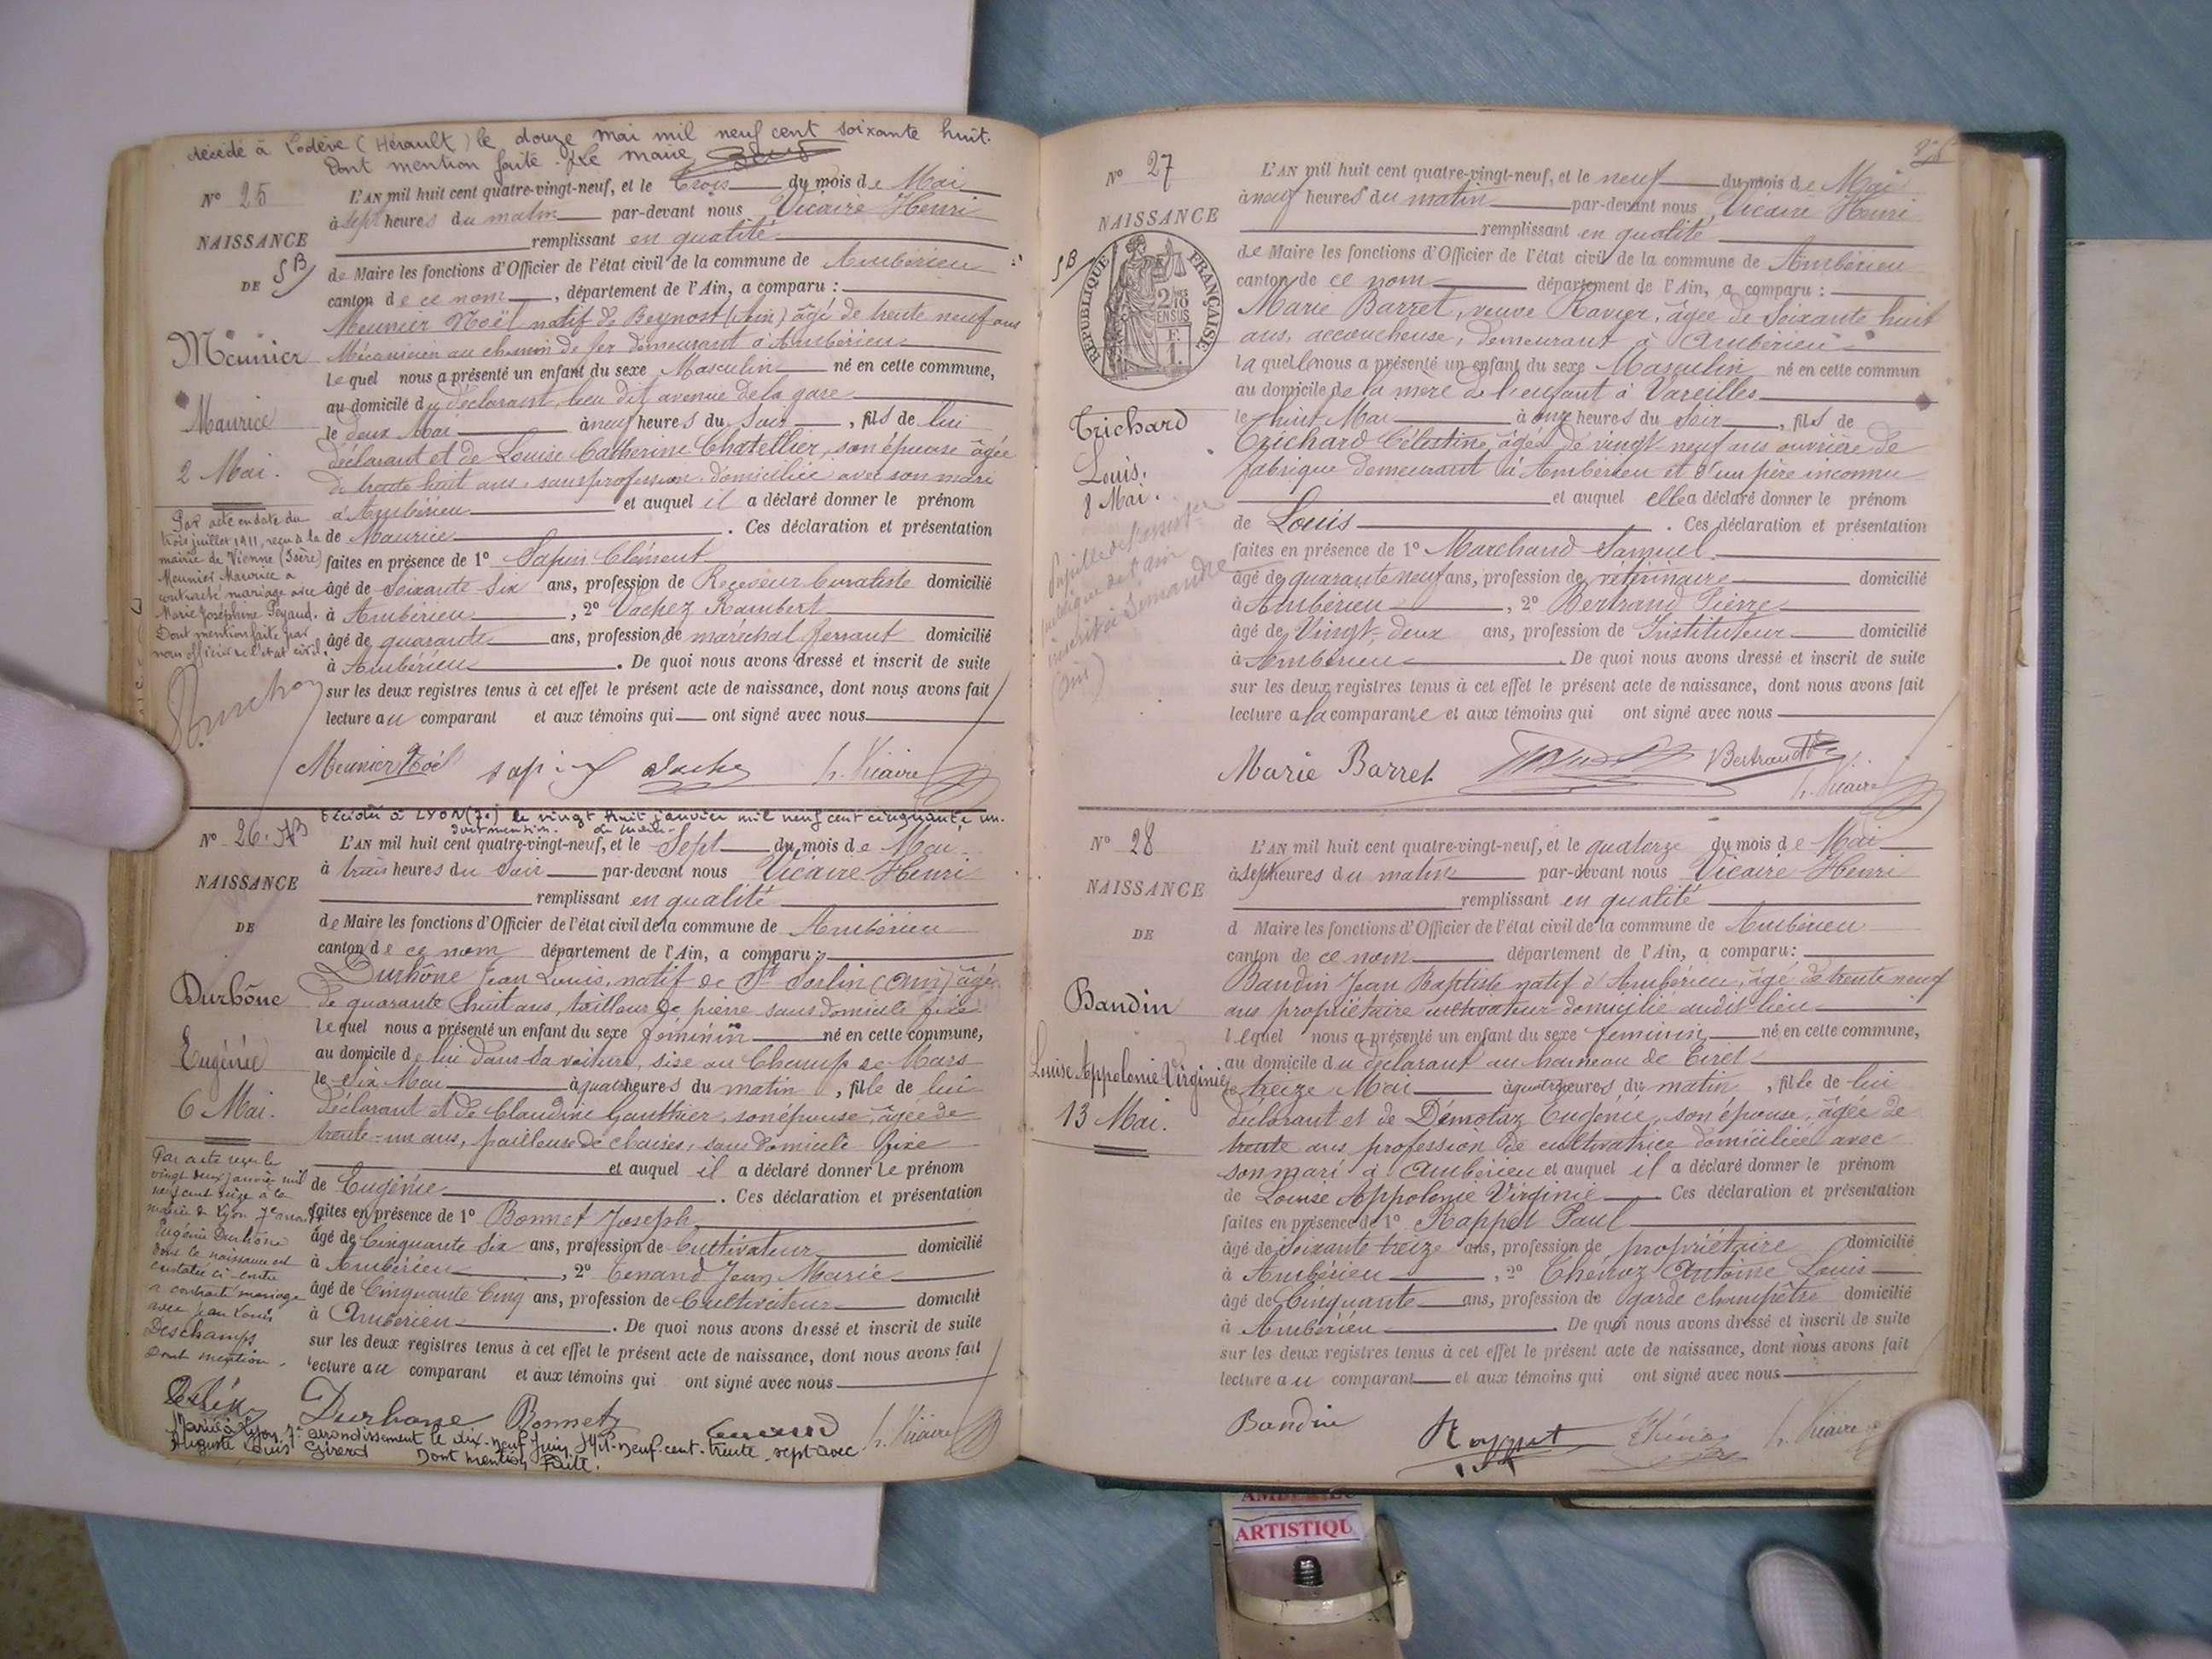 décédé à Lodève (Hérault) le douze mai mil neuf cent soixante huit.
Dont mention faite. Le maire
N° 25
NAISSANCE
DE
SB
Meunier
Maurice
2 Mai.
Par acte en date du
trois juillet 1911, reçu à la
mairie de Vienne (Isère)
Meunier Maurice a
contracté mariage avec
Marie Joséphine Peyaud.
Dont mention faite par
nous officier de l'état civil.
L'AN mil huit cent quatre-vingt-neuf, et le trois du mois de Mai
à sept heures du matin par-devant nous Vicaire Henri
remplissant en qualité
de Maire les fonctions d'Officier de l'état civil de la commune de Ambérieu
canton de ce nom, département de l'Ain, a comparu :
Meunier Noël natif de Beynost (Ain) âgé de trente neuf ans
Mécanicien au chemin de fer demeurant à Ambérieu
lequel nous a présenté un enfant du sexe Masculin né en cette commune,
au domicile du déclarant, lieu dit avenue de la gare
le deux Mai à neuf heures du soir, fils de lui
déclarant et de Louise Catherine Chatellier, son épouse âgée
de trente huit ans, sans profession domiciliée avec son mari
à Ambérieu et auquel il a déclaré donner le prénom
de Maurice. Ces déclaration et présentation
faites en présence de 1° Sapin Clément
âgé de soixante six ans, profession de Receveur buraliste domicilié
à Ambérieu, 2° Vachez Rambert
âgé de quarante ans, profession de maréchal ferrant domicilié
à Ambérieu. De quoi nous avons dressé et inscrit de suite
sur les deux registres tenus à cet effet le présent acte de naissance, dont nous avons fait
lecture au comparant et aux témoins qui ont signé avec nous
Meunier Noël sapin h. Vicaire
Décédée à LYON (7e) le vingt huit janvier mil neuf cent cinquante un.
Dont mention.
N° 26.
NAISSANCE
DE
Durhône
Eugénie
6 Mai.
Par acte reçu le
vingt deux janvier mil
neuf cent seize à la
mairie de Lyon 7e arront
Eugénie Durhône
dont la naissance est
constatée ci-contre
a contracté mariage
avec Jean Louis
Deschamps
Dont mention.
L'AN mil huit cent quatre-vingt-neuf, et le Sept du mois de Mai
à trois heures du soir par-devant nous Vicaire Henri
remplissant en qualité
de Maire les fonctions d'Officier de l'état civil de la commune de Ambérieu
canton de ce nom département de l'Ain, a comparu :
Durhône Jean Louis, natif de St Sorlin (Ain) âgé
de quarante huit ans, tailleur de pierre sans domicile fixe
lequel nous a présenté un enfant du sexe féminin né en cette commune,
au domicile de lui dans sa voiture, sise au Champ de Mars
le six Mai à quatre heures du matin, fille de lui
déclarant et de Claudine Gauthier, son épouse âgée de
trente-un ans, pailleuse de chaises, sans domicile fixe
et auquel il a déclaré donner le prénom
de Eugénie. Ces déclaration et présentation
faites en présence de 1° Bonnet Joseph
âgé de Cinquante six ans, profession de Cultivateur domicilié
à Ambérieu, 2° Tenand Jean Marie
âgé de Cinquante cinq ans, profession de Cultivateur domicilié
à Ambérieu. De quoi nous avons dressé et inscrit de suite
sur les deux registres tenus à cet effet le présent acte de naissance, dont nous avons fait
lecture au comparant et aux témoins qui ont signé avec nous
Durhone Bonnet Tenand h. Vicaire
Mariée à Lyon, 7e arrondissement le dix-neuf Juin Mil-neuf-cent-trente-sept avec
Auguste Louis Girerd Dont mention faite.
28
N° 27
NAISSANCE
SB
RÉPUBLIQUE FRANÇAISE
Trichard
Louis.
8 Mai.
L'AN mil huit cent quatre-vingt-neuf, et le neuf du mois de Mai
à neuf heures du matin par-devant nous Vicaire Henri
remplissant en qualité
de Maire les fonctions d'Officier de l'état civil de la commune de Ambérieu
canton de ce nom département de l'Ain, a comparu :
Marie Barret, veuve Ravier, âgée de soixante huit
ans, accoucheuse, demeurant à Ambérieu
laquelle nous a présenté un enfant du sexe Masculin né en cette commun
au domicile de la mère de l'enfant à Vareilles
le huit Mai à onze heures du soir, fils de
Trichard Célestine, âgée de vingt-neuf ans ouvrière de
fabrique demeurant à Ambérieu et d'un père inconnu
et auquel elle a déclaré donner le prénom
de Louis. Ces déclaration et présentation
faites en présence de 1° Marchand Samuel
âgé de quarante neuf ans, profession de vétérinaire domicilié
à Ambérieu, 2° Bertrand Pierre
âgé de Vingt-deux ans, profession de Instituteur domicilié
à Ambérieu. De quoi nous avons dressé et inscrit de suite
sur les deux registres tenus à cet effet le présent acte de naissance, dont nous avons fait
lecture à la comparante et aux témoins qui ont signé avec nous
Marie Barret Bertrand h. Vicaire
N° 28
NAISSANCE
DE
Baudin
Louise Appolonie Virginie
13 Mai.
L'AN mil huit cent quatre-vingt-neuf, et le quatorze du mois de Mai
à sept heures du matin par-devant nous Vicaire Henri
remplissant en qualité
d Maire les fonctions d'Officier de l'état civil de la commune de Ambérieu
canton de ce nom département de l'Ain, a comparu :
Baudin Jean Baptiste natif d'Ambérieu, âgé de trente neuf
ans propriétaire cultivateur domicilié audit lieu
lequel nous a présenté un enfant du sexe féminin né en cette commune,
au domicile du déclarant au hameau de Tiret
le treize Mai à quatre heures du matin, fille de lui
déclarant et de Démotaz Eugénie, son épouse, âgée de
trente ans profession de cultivatrice domiciliée avec
son mari à Ambérieu et auquel il a déclaré donner le prénom
de Louise Appolonie Virginie Ces déclaration et présentation
faites en présence de 1° Rappet Paul
âgé de soixante treize ans, profession de propriétaire domicilié
à Ambérieu, 2° Thénoz Antoine Louis
âgé de Cinquante ans, profession de garde champêtre domicilié
à Ambérieu De quoi nous avons dressé et inscrit de suite
sur les deux registres tenus à cet effet le présent acte de naissance, dont nous avons fait
lecture au comparant et aux témoins qui ont signé avec nous
Baudin h. Vicaire
ARTISTIQU